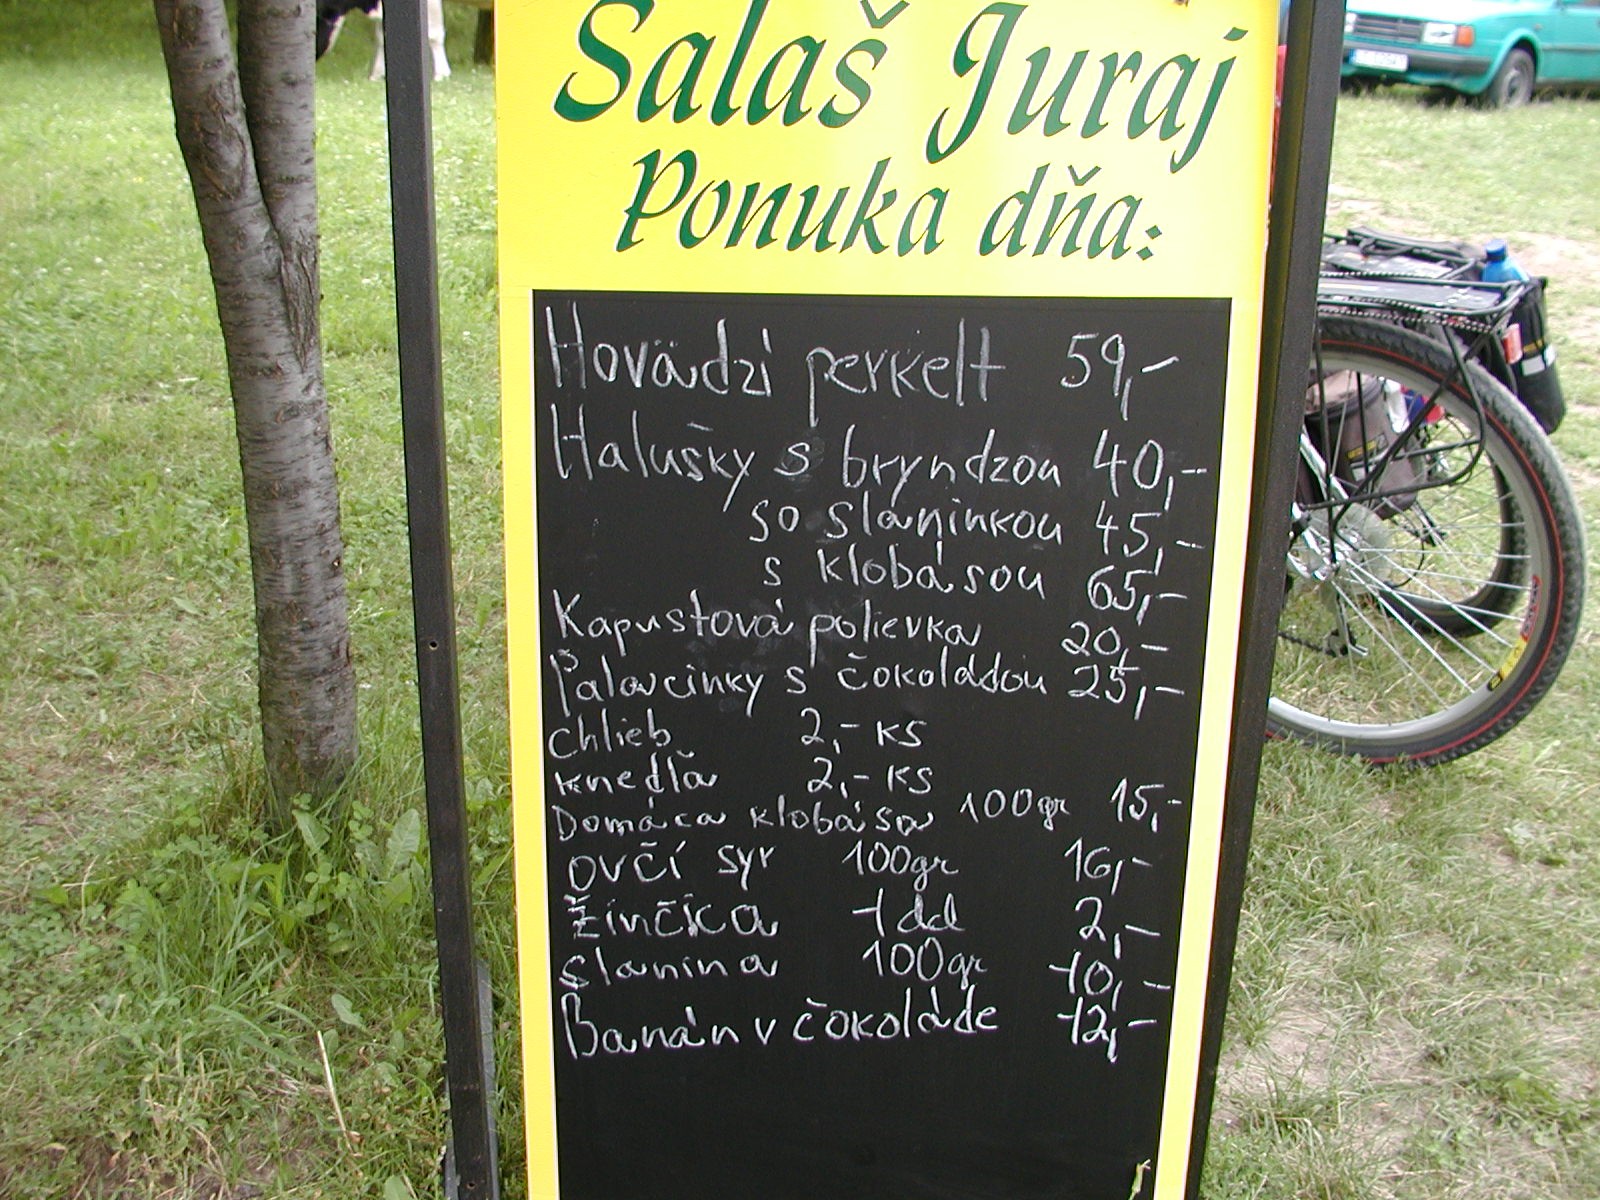 Salaš Juraj
Ponuka dňa:
Hovädzí perkelt 59,-
Halušky s bryndzou 40,-
so slaninkou 45,-
s klobásou 65,-
Kapustová polievka 20,-
Palacinky s čokoládou 25,-
chlieb 2,- ks
knedľa 2,- ks
Domáca klobása 100gr 15,-
ovčí syr 100gr 16,-
Žinčica 1dcl 2,-
slanina 100gr 10,-
Banán v čokoláde 12,-